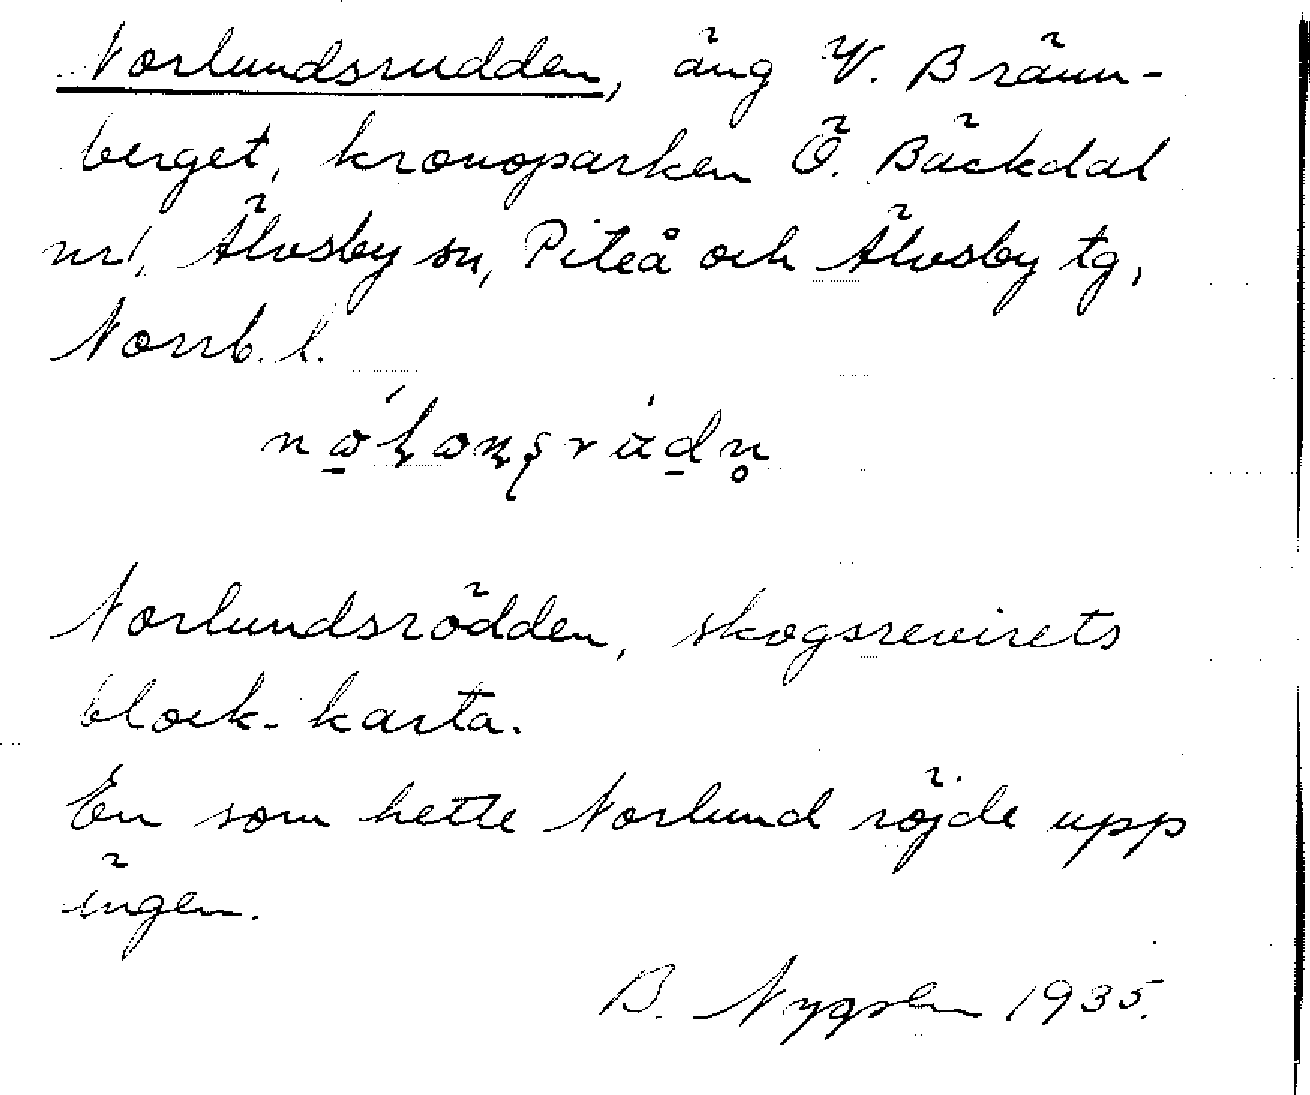 Norlundsrudden, äng V. Bränn-
berget, kronoparken Ö. Bäckdal
nr 1, Älvsby sn, Piteå och Älvsby tg,
Norrb. l.
Norlundsrödden, skogsrevirets
block-karta.
En som hette Norlund röjde upp
ängen.
B. 1935.